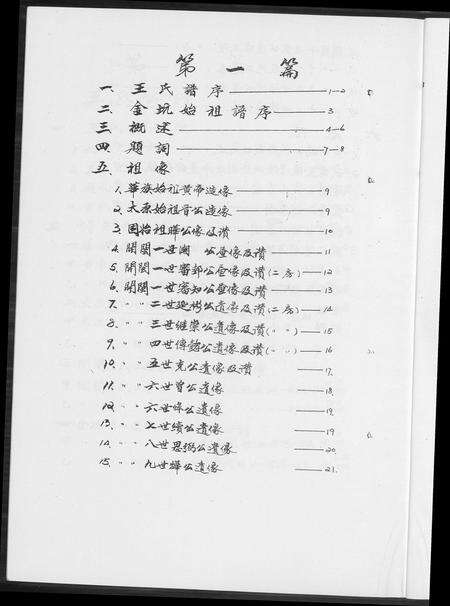 第一篇
一、王氏譜序——1—2
二、金坑始祖譜序——3
三、概述——4—6
四、題詞——7—8
五、祖像
1、華族始祖黄帝造像——9
2、太原始祖晉公造像——9
3、固始祖曄公像及讚——10
4、開閩一世潮 公坐像及讚——11
5、開閩一世審邽公坐像及讚(二房)——12
6、開閩一世審知公坐像及讚——13
7、〃〃二世延彬公遺像及讚(二房)——14
8、〃〃三世継崇公遺像及讚(〃〃)——15
9、〃〃四世傳公遺像及讚(〃〃)——16
10、〃〃五世克公遺像及讚——17
11、〃〃六世曾公遺像——18
12、〃〃六世公遺像——19
13、〃〃七世績公遺像——19
14、〃〃八世思公遺像——20
15、〃〃九世公遺像——21